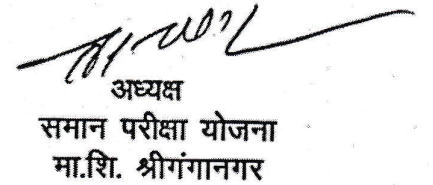 अध्यक्ष
समान परीक्षा योजना
मा.शि. श्रीगंगानगर